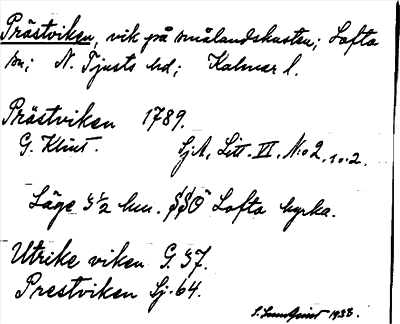 Prästviken, vik på smålandskusten; Lofta
sn; N. Tjusts hd; Kalmar l.
Prästviken 1789.
G. Klint. SjA, Litt. VI, No 2, 1 o. 2.
Läge 3½ km. SSO Lofta kyrka.
Utrike viken G. 37.
Prestviken Sj. 64.
1933.